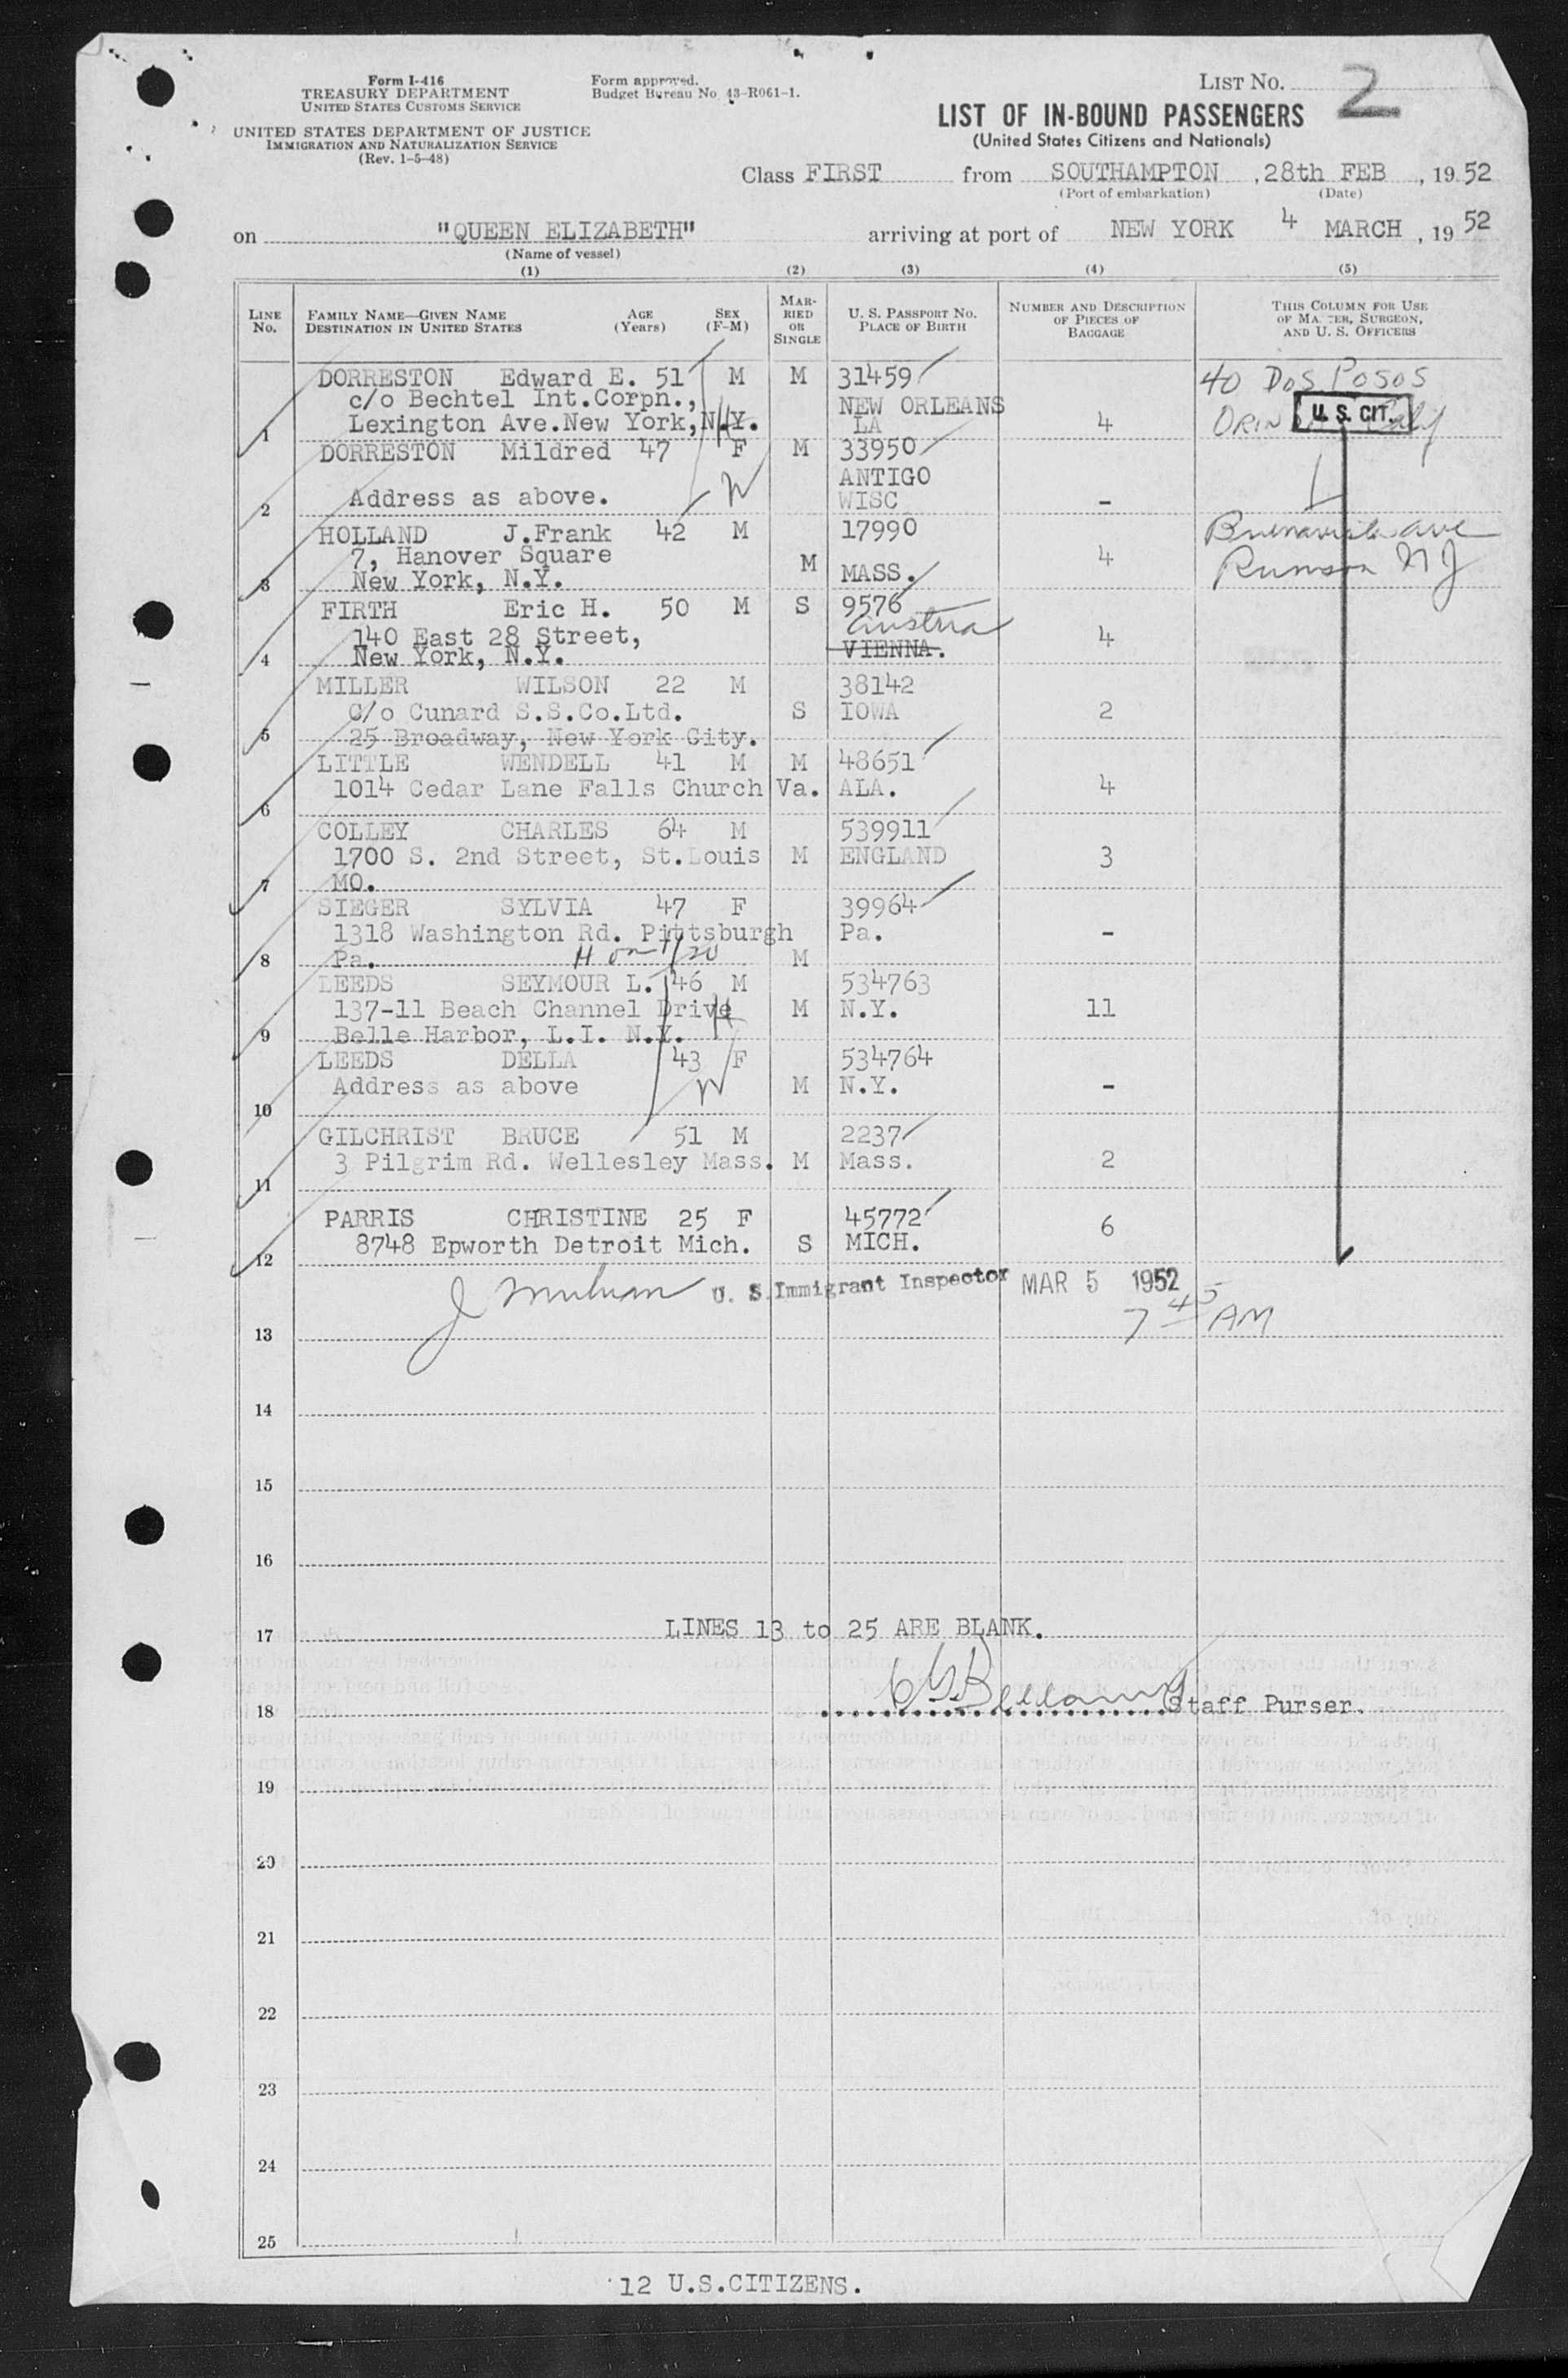 Form I-416
TREASURY DEPARTMENT
UNITED STATES CUSTOMS SERVICE
UNITED STATES DEPARTMENT OF JUSTICE
IMMIGRATION AND NATURALIZATION SERVICE
(Rev. 1-5-48)
Form approved.
Budget Bureau No. 43-R061-1.
LIST NO. 2
LIST OF IN-BOUND PASSENGERS
(United States Citizens and Nationals)
Class FIRST from SOUTHAMPTON , 28th FEB , 19 52
(Port of embarkation) (Date)
on "QUEEN ELIZABETH" arriving at port of NEW YORK 4 MARCH , 19 52
(Name of vessel)
(1) (2) (3) (4) (5)
LINE No.
FAMILY NAME—GIVEN NAME AGE SEX
DESTINATION IN UNITED STATES (Years) (F-M)
MARRIED OR SINGLE
U. S. PASSPORT NO.
PLACE OF BIRTH
NUMBER AND DESCRIPTION
OF PIECES OF
BAGGAGE
THIS COLUMN FOR USE
OF MASTER, SURGEON,
AND U. S. OFFICERS
DORRESTON Edward E. 51 M M 31459 40 Dos Posos
c/o Bechtel Int.Corpn., NEW ORLEANS U. S. CIT.
1 Lexington Ave.New York,N.Y. LA 4
DORRESTON Mildred 47 F M 33950
ANTIGO
2 Address as above. W WISC -
HOLLAND J.Frank 42 M 17990 Buenavista ave
7, Hanover Square M 4 Rumson NJ
3 New York, N.Y. MASS.
FIRTH Eric H. 50 M S 9576
Austria
140 East 28 Street, 4
4 New York, N.Y. VIENNA.
MILLER WILSON 22 M 38142
C/o Cunard S.S.Co.Ltd. S IOWA 2
5 25 Broadway, New York City.
LITTLE WENDELL 41 M M 48651
1014 Cedar Lane Falls Church Va. ALA. 4
6
COLLEY CHARLES 64 M 539911
1700 S. 2nd Street, St.Louis M ENGLAND 3
7 MO.
SIEGER SYLVIA 47 F 39964
1318 Washington Rd. Pittsburgh Pa. -
8 Pa. M
LEEDS SEYMOUR L. 46 M 534763
137-11 Beach Channel Drive H M N.Y. 11
9 Belle Harbor, L.I. N.Y.
LEEDS DELLA 43 F 534764
Address as above W M N.Y. -
10
GILCHRIST BRUCE 51 M 2237
3 Pilgrim Rd. Wellesley Mass. M Mass. 2
11
PARRIS CHRISTINE 25 F 45772 6
8748 Epworth Detroit Mich. S MICH.
12
U. S. Immigrant Inspector MAR 5 1952
7 45 AM
13
14
15
16
17 LINES 13 to 25 ARE BLANK.
18 Staff Purser.
19
20
21
22
23
24
25
12 U.S.CITIZENS.